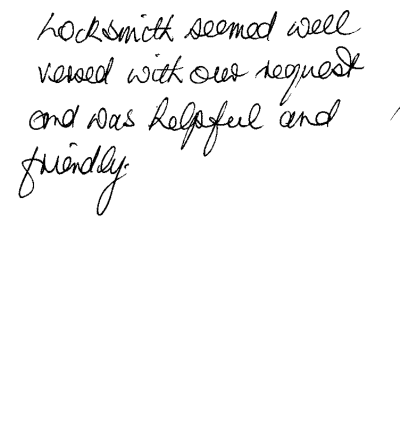 Locksmith seemed well
versed with our request
and was helpful and
friendly.